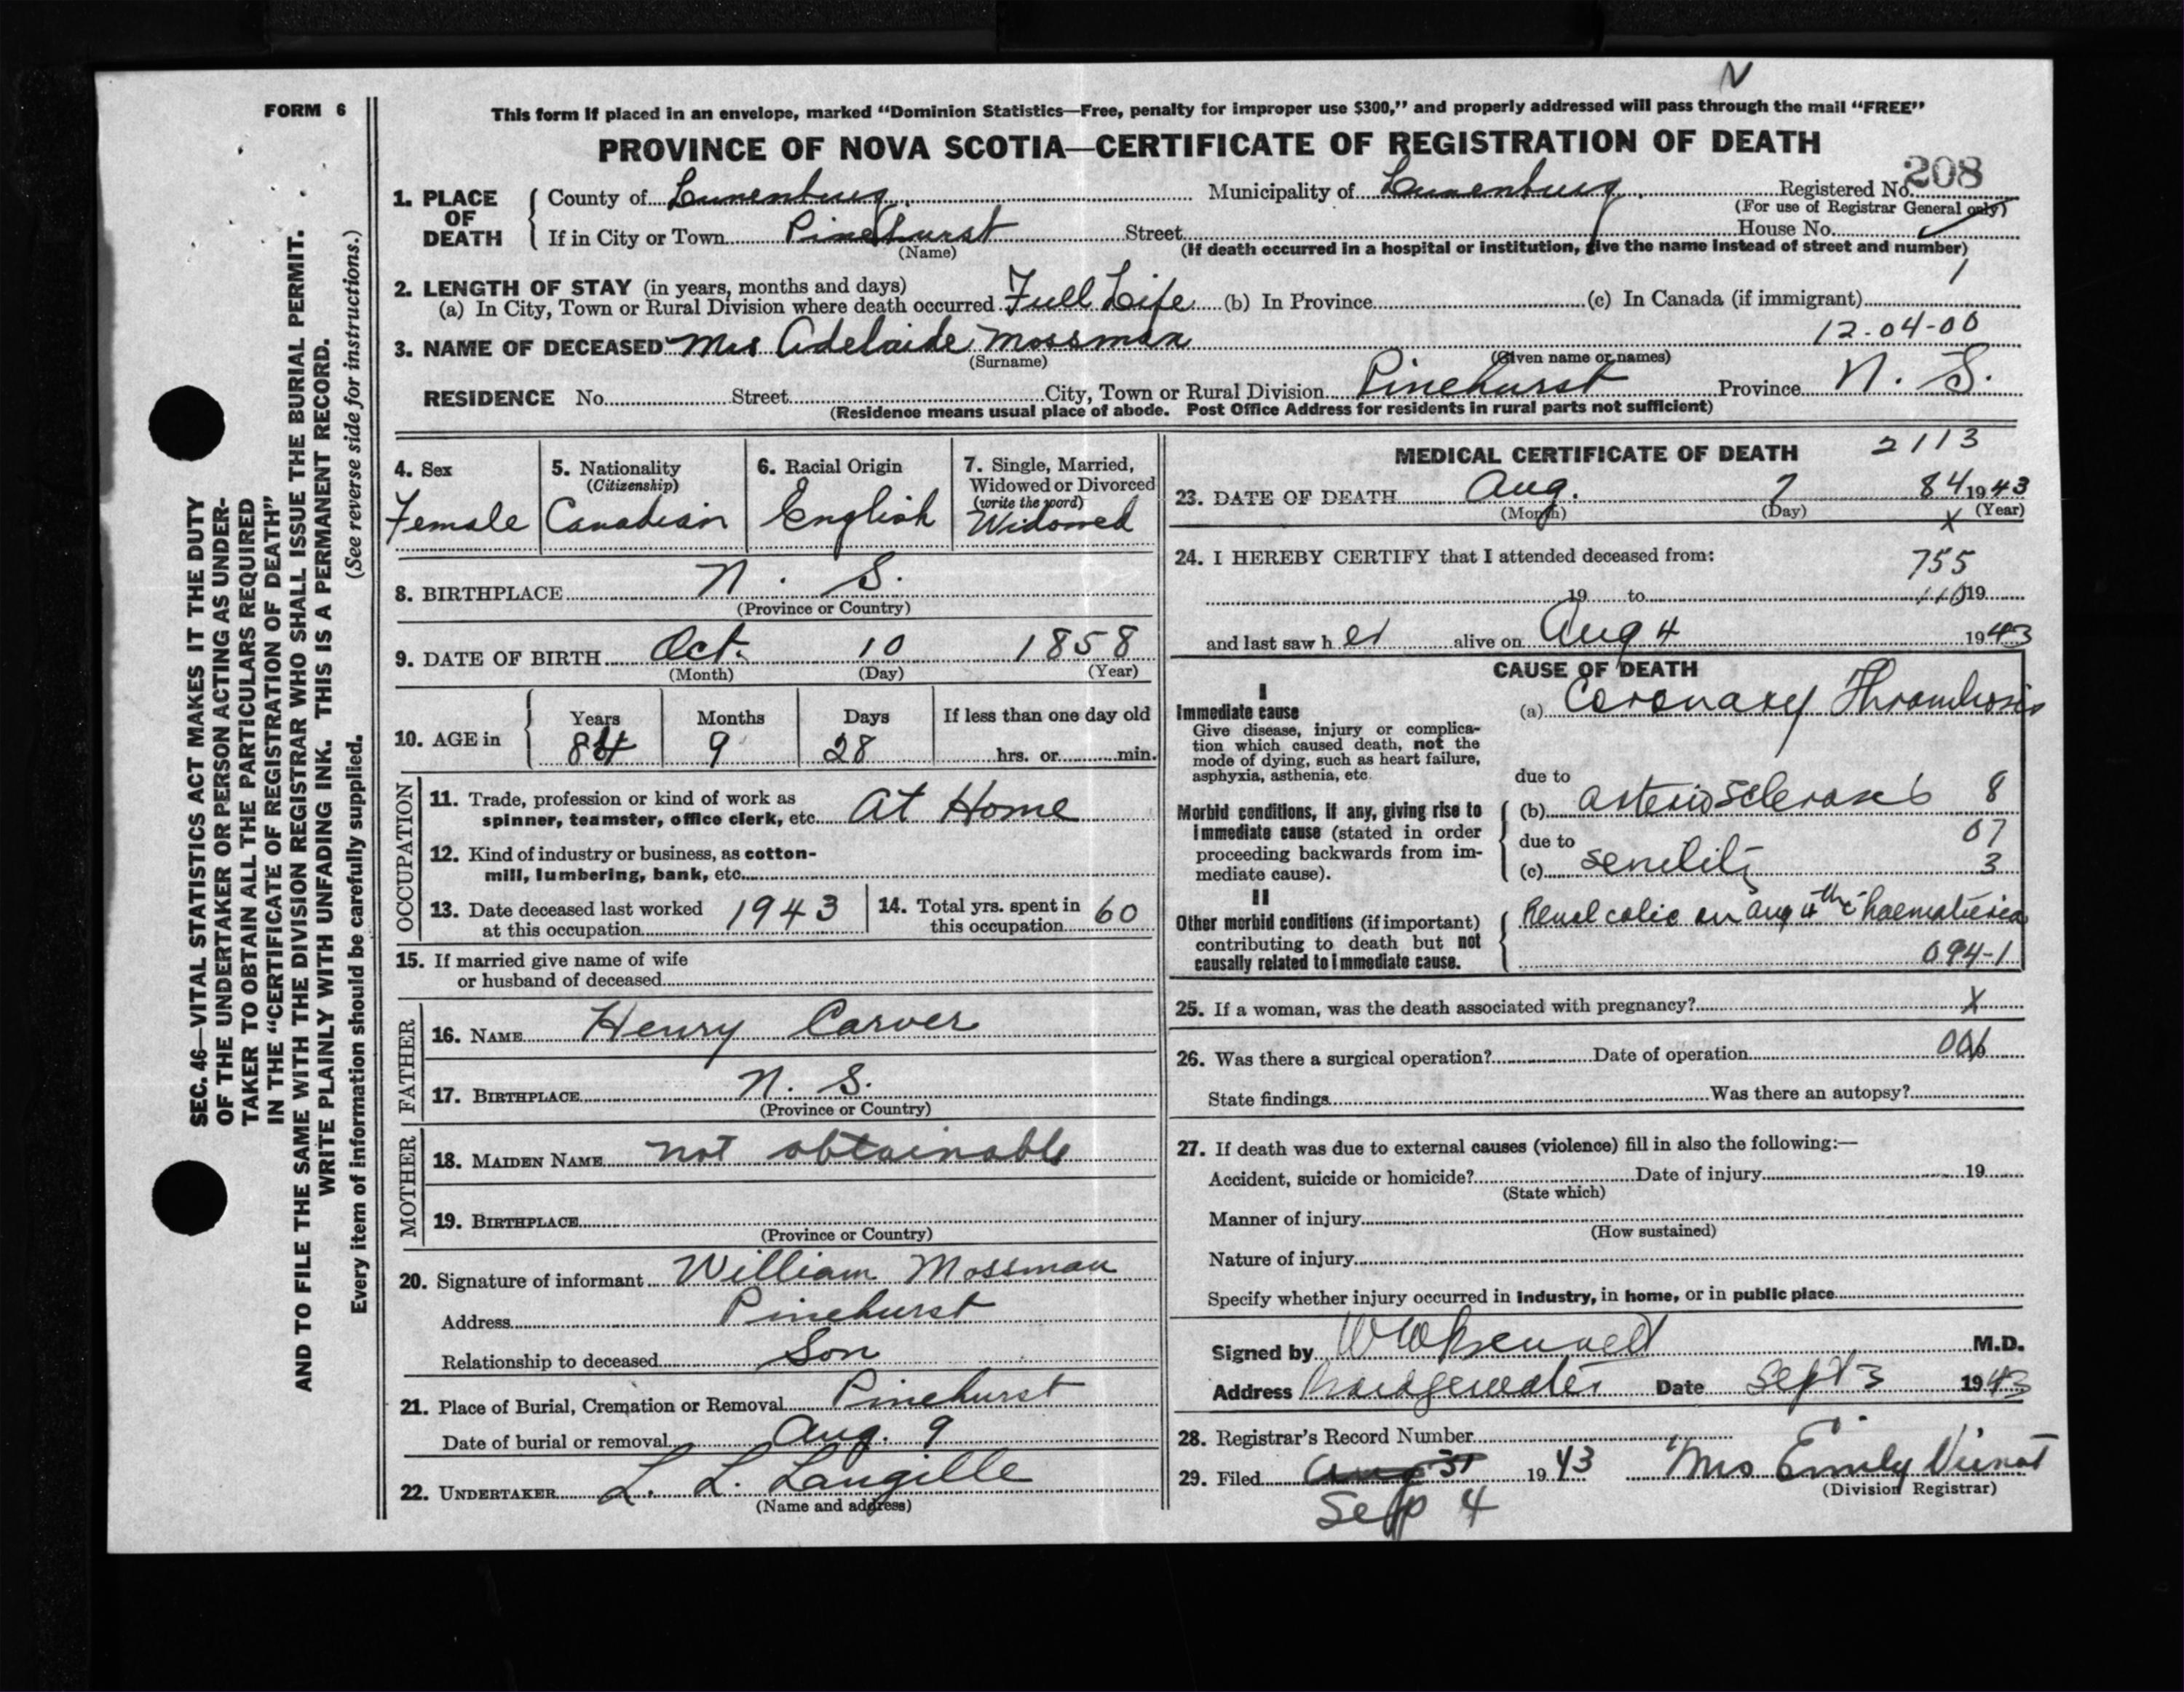 N
FORM 6
This form if placed in an envelope, marked “Dominion Statistics—Free, penalty for improper use $300,” and properly addressed will pass through the mail “FREE”
PROVINCE OF NOVA SCOTIA—CERTIFICATE OF REGISTRATION OF DEATH
208
1. PLACE OF DEATH County of Lunenburg. Municipality of Lunenburg. Registered No.
(For use of Registrar General only)
If in City or Town Pinehurst Street House No.
(Name) (If death occurred in a hospital or institution, give the name instead of street and number)
2. LENGTH OF STAY (in years, months and days) 1
(a) In City, Town or Rural Division where death occurred Full Life (b) In Province (c) In Canada (if immigrant)
12-04-00
3. NAME OF DECEASED Mrs Adelaide Mossman
(Surname) (Given name or names)
RESIDENCE No. Street City, Town or Rural Division Pinehurst Province N. S.
(Residence means usual place of abode. Post Office Address for residents in rural parts not sufficient)
SEC. 46—VITAL STATISTICS ACT MAKES IT THE DUTY
OF THE UNDERTAKER OR PERSON ACTING AS UNDER-
TAKER TO OBTAIN ALL THE PARTICULARS REQUIRED
IN THE “CERTIFICATE OF REGISTRATION OF DEATH”
AND TO FILE THE SAME WITH THE DIVISION REGISTRAR WHO SHALL ISSUE THE BURIAL PERMIT.
WRITE PLAINLY WITH UNFADING INK. THIS IS A PERMANENT RECORD.
Every item of information should be carefully supplied. (See reverse side for instructions.)
4. Sex
Female
5. Nationality
(Citizenship)
Canadian
6. Racial Origin
English
7. Single, Married,
Widowed or Divorced
(write the word)
Widowed
8. BIRTHPLACE N. S.
(Province or Country)
9. DATE OF BIRTH Oct. 10 1858
(Month) (Day) (Year)
10. AGE in Years Months Days If less than one day old
84 9 28 hrs. or min.
OCCUPATION
11. Trade, profession or kind of work as
spinner, teamster, office clerk, etc. At Home
12. Kind of industry or business, as cotton-
mill, lumbering, bank, etc.
13. Date deceased last worked
at this occupation 1943
14. Total yrs. spent in
this occupation 60
15. If married give name of wife
or husband of deceased
FATHER
16. NAME Henry Carver
17. BIRTHPLACE N. S.
(Province or Country)
MOTHER
18. MAIDEN NAME not obtainable
19. BIRTHPLACE
(Province or Country)
20. Signature of informant William Mossman
Address Pinehurst
Relationship to deceased Son
21. Place of Burial, Cremation or Removal Pinehurst
Date of burial or removal Aug. 9
22. UNDERTAKER L. L. Langille
(Name and address)
MEDICAL CERTIFICATE OF DEATH 2113
23. DATE OF DEATH Aug. 7 84 1943
(Month) (Day) (Year)
X
24. I HEREBY CERTIFY that I attended deceased from:
755
19 to 19
and last saw h er alive on Aug 4 1943
CAUSE OF DEATH
I
Immediate cause
Give disease, injury or complica-
tion which caused death, not the
mode of dying, such as heart failure,
asphyxia, asthenia, etc.
(a) Coronary Thrombosis
due to
Morbid conditions, if any, giving rise to
immediate cause (stated in order
proceeding backwards from im-
mediate cause).
(b) arteriosclerosis 8
due to 07
(c) senility 3
II
Other morbid conditions (if important)
contributing to death but not
causally related to immediate cause.
Renal colic on Aug 4th
094-1
25. If a woman, was the death associated with pregnancy? X
26. Was there a surgical operation? Date of operation
State findings Was there an autopsy?
27. If death was due to external causes (violence) fill in also the following:—
Accident, suicide or homicide? Date of injury 19
(State which)
Manner of injury
(How sustained)
Nature of injury
Specify whether injury occurred in industry, in home, or in public place
Signed by M.D.
Address Bridgewater Date Sept 3 1943
28. Registrar's Record Number
29. Filed Aug 31 1943 Mrs Emily
Sep 4 (Division Registrar)